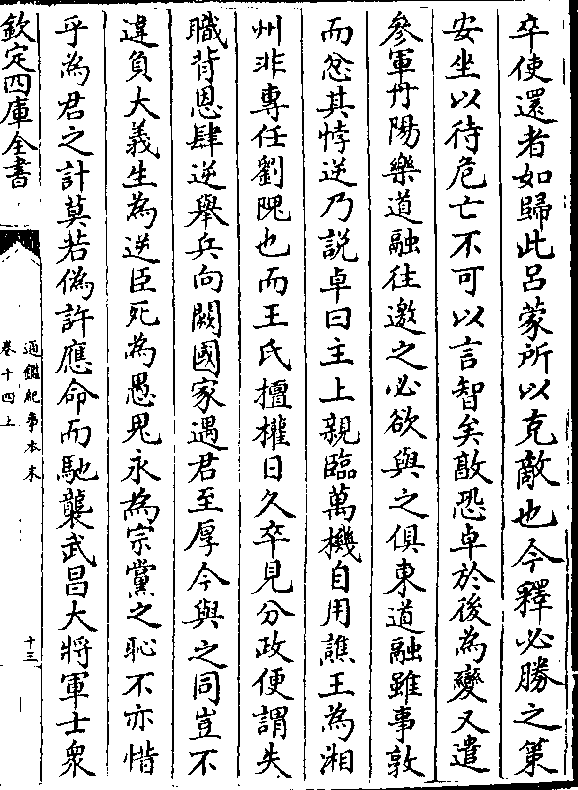 卒使還者如歸此呂蒙所以克敵也今釋必勝之策
安坐以待危亡不可以言智矣敦恐卓於後為變又遣
參軍丹陽樂道融往邀之必欲與之俱東道融雖事敦
而忿其悖逆乃説卓曰主上親臨萬機自用譙王為湘
州非專任劉隗也而王氏擅權日久卒見分政便謂失
職背恩肆逆舉兵向闕國家遇君至厚今與之同豈不
違負大義生為逆臣死為愚鬼永為宗黨之恥不亦惜
乎為君之計莫若偽許應命而馳襲武昌大將軍士衆
欽定四庫全書
通鑑紀事本末
卷十四上
十三